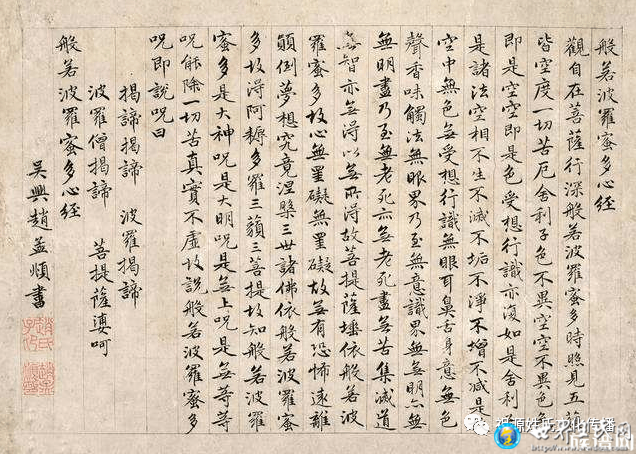 般若波羅蜜多心経
觀自在菩薩行深般若波羅蜜多時照見五蘊
皆空度一切苦厄舍利子色不異空空不異色色
即是空空即是色受想行識亦復如是舍利子
是諸法空相不生不滅不垢不淨不增不減是
空中無色無受想行識無眼耳鼻舌身意無色
聲香味觸法無眼界乃至無意識界無無明亦無
無明盡乃至無老死亦無老死盡無苦集滅道
無智亦無得以無所得故菩提薩埵依般若波
羅蜜多故心無罣礙無罣礙故無有恐怖遠離
顛倒夢想究竟涅槃三世諸佛依般若波羅蜜
多故得阿耨多羅三藐三菩提故知般若波羅
蜜多是大神咒是大明咒是無上咒是無等等
咒能除一切苦真實不虛故說般若波羅蜜多
咒即說咒曰
揭諦揭諦 波羅揭諦
波羅僧揭諦 菩提薩婆呵
般若波羅蜜多心経
吳興趙孟頫書
趙氏子昂